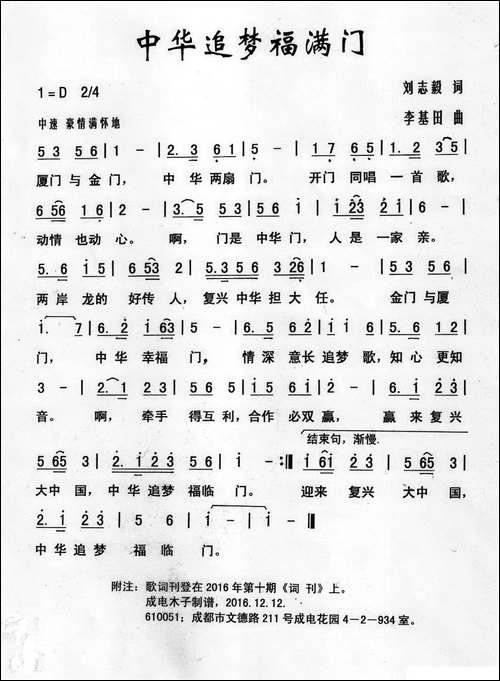 中华追梦福满门
1=D 2/4
刘志毅 词
中速 豪情满怀地
李基田 曲
5 3 5 6 | 1 - | 2. 3 6 1 | 5 - | 1 7 6 5 | 1. 2 3 5 |
厦门 与 金门， 中 华 两扇 门。 开门 同唱 一 首 歌，
6 56 1 6 | 2 - | 3. 5 5 | 5. 3 5 6 | 1 23 2 1 | 6 - |
动情 也动 心。 啊， 门是 中华 门， 人 是 一家 亲。
5. 6 1 5 | 6 53 2 | 5. 3 5 6 3 26 | 1 - | 5 3 5 6 |
两 岸 龙的 好传 人，复兴 中华 担 大 任。 金门 与厦
1. 7 | 6. 2 1 63 | 5 - | 6. 5 6 2 1 6 | 5. 6 1 2 |
门， 中 华 幸福 门， 情深 意长 追梦 歌，知 心 更知
3 - | 2. 1 2 3 | 5 6 5 | 1 5 1 2 | 2 - | 6. 1 2 3 |
音。 啊， 牵手 得互 利，合作 必双 赢， 赢 来 复兴
结束句，渐慢.
5 65 3 | 2. 1 2 3 | 5 6 | 1 - :‖ 1 61 2 3 | 5 65 3 |
大中 国，中华 追梦 福临 门。 迎来 复兴 大中 国，
2. 1 2 3 | 5 6 | 1 - | 1 - ‖
中华 追梦 福 临 门。
附注：歌词刊登在2016年第十期《词 刊》上。
成电木子制谱，2016.12.12.
610051；成都市文德路211号成电花园4－2－934室。